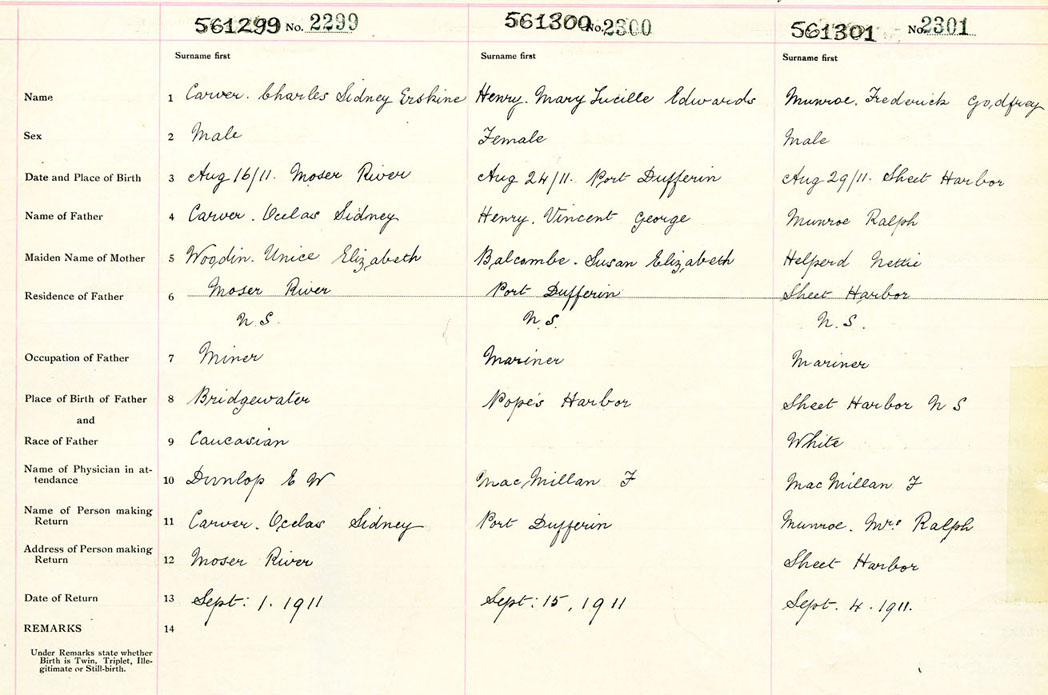 561299 No. 2299 561300 No. 2300 561301 No. 2301
Surname first Surname first Surname first
Name 1 Carver. Charles Sidney Erskine Henry. Mary Lucille Edwards Munroe. Frederick Godfrey
Sex 2 Male Female Male
Date and Place of Birth 3 Aug 16/11. Moser River Aug 24/11. Port Dufferin Aug 29/11. Sheet Harbor
Name of Father 4 Carver. Ocelas Sidney Henry. Vincent George Munroe Ralph
Maiden Name of Mother 5 Woodin. Unice Elizabeth Balcombe. Susan Elizabeth Helperd Nettie
Residence of Father 6 Moser River Port Dufferin Sheet Harbor
N.S. N.S. N.S.
Occupation of Father 7 Miner Mariner Mariner
Place of Birth of Father 8 Bridgewater Pope's Harbor Sheet Harbor N S
and
Race of Father 9 Caucasian White
Name of Physician in at-
tendance 10 Dunlop E W MacMillan F MacMillan F
Name of Person making
Return 11 Carver. Ocelas Sidney Port Dufferin Munroe. Mrs Ralph
Address of Person making
Return 12 Moser River Sheet Harbor
Date of Return 13 Sept: 1. 1911 Sept: 15, 1911 Sept. 4. 1911.
REMARKS 14
Under Remarks state whether
Birth is Twin, Triplet, Ille-
gitimate or Still-birth.